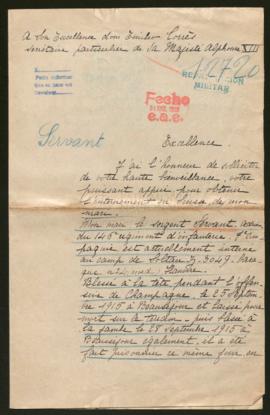 A Son Excellence don Emilio Torrès
Secrétaire particulier de Sa Majesté Alphonse XIII
12720
REPATRIACION
MILITAR
Fecho
e.a.e.
Servant
Excellence
J'ai l'honneur de solliciter
de votre haute bienveillance, votre
puissant appui pour obtenir
l'internement en Suisse de mon
mari.
Mon mari le sergent Servant
du 146e régiment d'infanterie,
compagnie est actuellement interné
au camp de
Blessé à la tête pendant l'offen-
sive de Champagne, le 25 Septem-
bre 1915 à Beauséjour et laissé pour
mort sur le puis blessé à
la jambe le 28 Septembre 1915 à
Beauséjour également, il a été
fait prisonnier ce même jour en